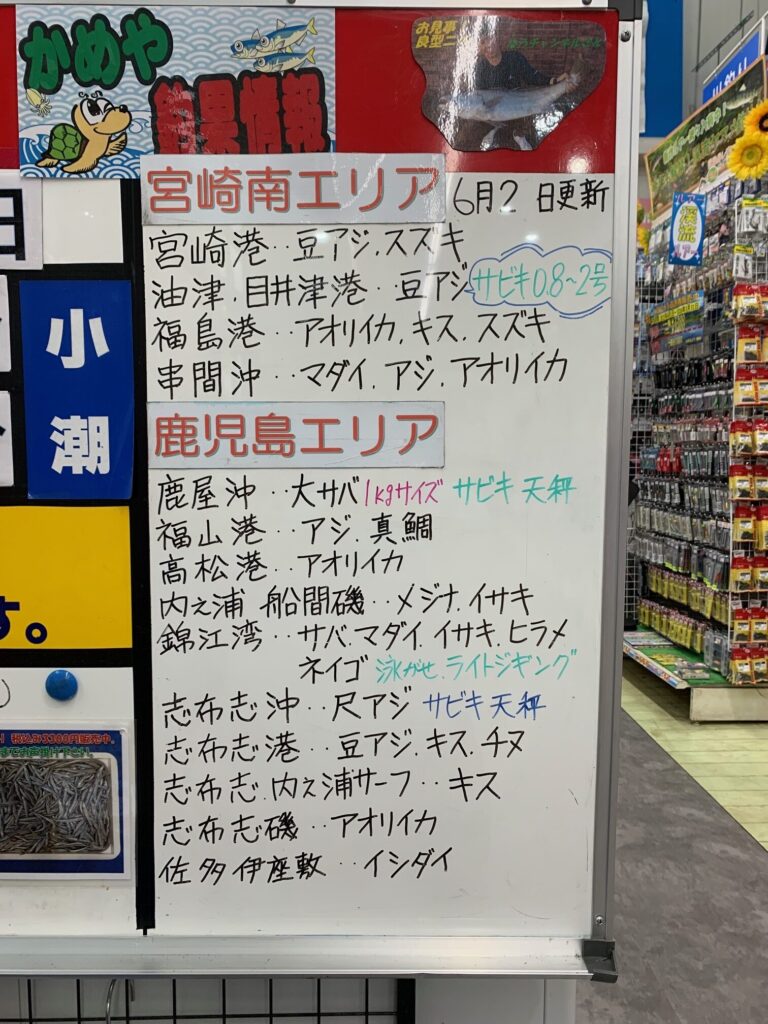 かめや
釣果情報
お見事
良型二
宮崎南エリア 6月2日更新
宮崎港‥豆アジ.スズキ
油津.目井津港‥豆アジ サビキ0.8~2号
福島港‥アオリイカ.キス.スズキ
串間沖‥マダイ.アジ.アオリイカ
鹿児島エリア
鹿屋沖‥大サバ 1kgサイズ サビキ 天秤
福山港‥アジ.真鯛
高松港‥アオリイカ
内之浦 船間磯‥メジナ.イサキ
錦江湾‥サバ.マダイ.イサキ.ヒラメ
ネイゴ 泳がせ.ライトジギング
志布志沖‥尺アジ サビキ 天秤
志布志港‥豆アジ.キス.チヌ
志布志.内之浦サーフ‥キス
志布志磯‥アオリイカ
佐多伊座敷‥イシダイ
日
小潮
す。
税込み3300円販売中。
渓流